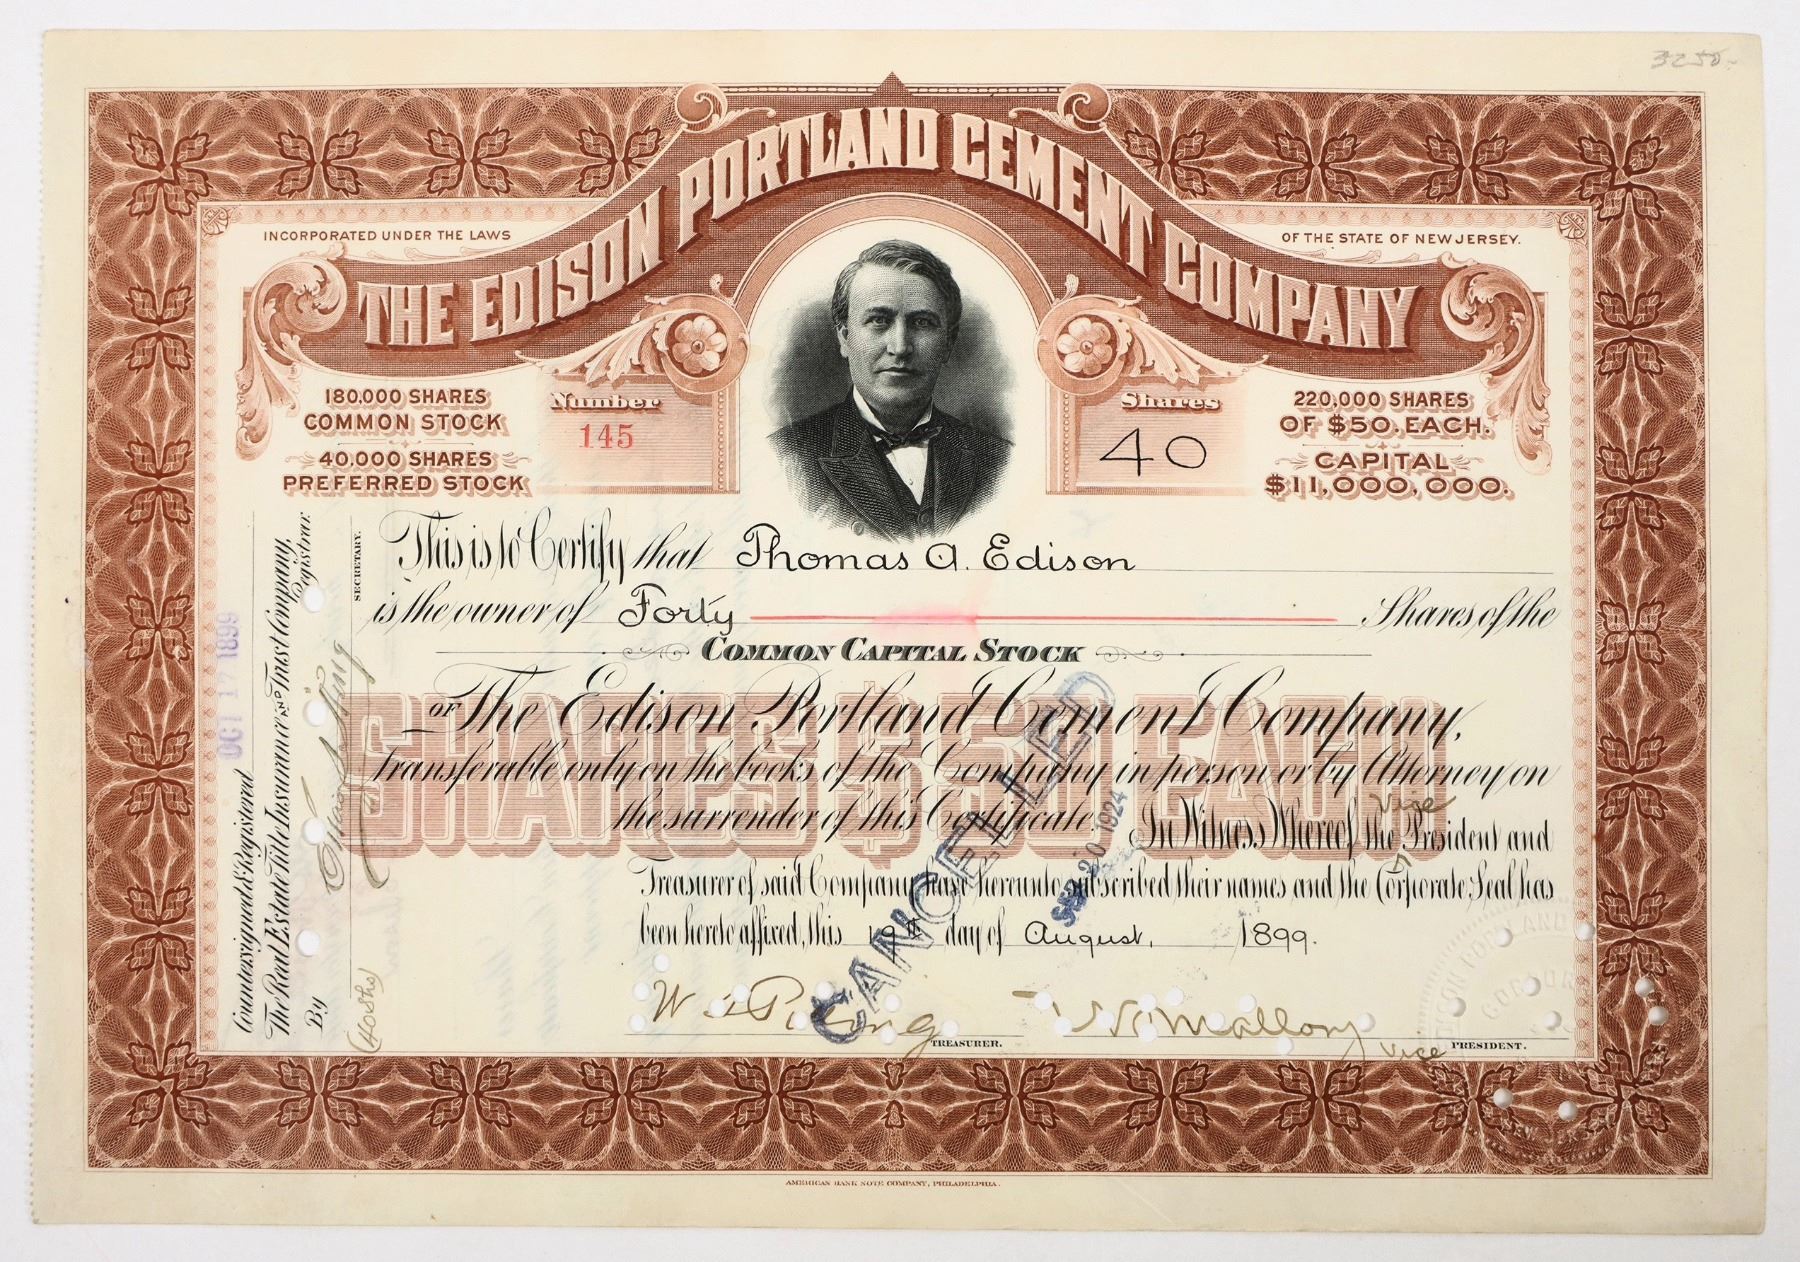 3250.-
THE EDISON PORTLAND CEMENT COMPANY
INCORPORATED UNDER THE LAWS
OF THE STATE OF NEW JERSEY.
180,000 SHARES
COMMON STOCK
40,000 SHARES
PREFERRED STOCK
Number
145
Shares
40
220,000 SHARES
OF $50. EACH.
CAPITAL
$11,000,000.
This is to Certify that Thomas A. Edison
is the owner of Forty Shares of the
COMMON CAPITAL STOCK
OF The Edison Portland Cement Company,
SHARES $50 EACH
Transferable only on the books of the Company in person or by Attorney on
the surrender of this Certificate. In Witness Whereof the Vice President and
Treasurer of said Company have hereunto subscribed their names and the Corporate Seal has
been hereto affixed, this 19th day of August, 1899.
TREASURER.
W. S. Mallory
Vice PRESIDENT.
CANCELLED
SEP 20 1924
Countersigned & Registered
OCT 17 1899
The Real Estate Title Insurance and Trust Company,
Registrar.
By
(40 Shs)
SECRETARY.
AMERICAN BANK NOTE COMPANY, PHILADELPHIA.